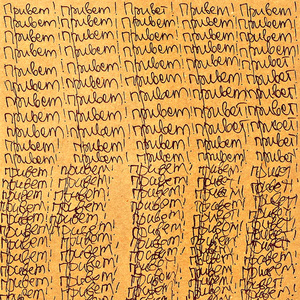 Привет! Привет! Привет! Привет! Привет!
Привет! Привет! Привет! Привет! Привет!
Привет! Привет! Привет! Привет! Привет!
Привет! Привет! Привет! Привет! Привет!
Привет! Привет! Привет! Привет! Привет!
Привет! Привет! Привет! Привет! Привет!
Привет! Привет! Привет! Привет! Привет!
Привет! Привет! Привет! Привет! Привет!
Привет! Привет! Привет! Привет! Привет!
Привет! Привет! Привет! Привет! Привет!
Привет! Привет! Привет! Привет! Привет!
Привет! Привет! Привет! Привет! Привет!
Привет! Привет! Привет! Привет! Привет!
Привет! Привет! Привет! Привет! Привет!
Привет! Привет! Привет! Привет! Привет!
Привет! Привет! Привет! Привет! Привет!
Привет! Привет! Привет! Привет! Привет!
Привет! Привет! Привет! Привет! Привет!
Привет! Привет! Привет! Привет! Привет!
Привет! Привет! Привет! Привет! Привет!
Привет! Привет! Привет! Привет! Привет!
Привет! Привет! Привет! Привет! Привет!